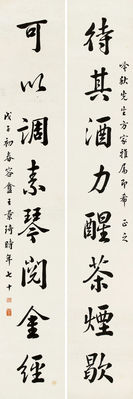 待其酒力醒茶煙歇
吟秋先生方家雅屬即希 正之
可以調素琴閱金經
戊子初春容盦王景琦時年七十